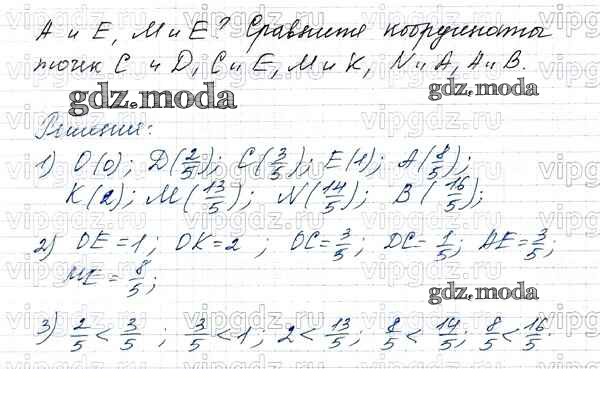 А и Е, М и Е? Сравните координаты
точек С и D, С и Е, М и К, N и А, А и В.
gdz.moda
gdz.moda
Решение:
1) O(0); D(2/5); C(3/5); E(1); A(8/5);
K(2); M(13/5); N(14/5); B(16/5);
2) OE = 1; OK = 2; OC = 3/5; DC = 1/5; AE = 3/5;
ME = 8/5;
gdz.moda
3) 2/5 < 3/5; 3/5 < 1; 2 < 13/5; 8/5 < 14/5; 8/5 < 16/5.